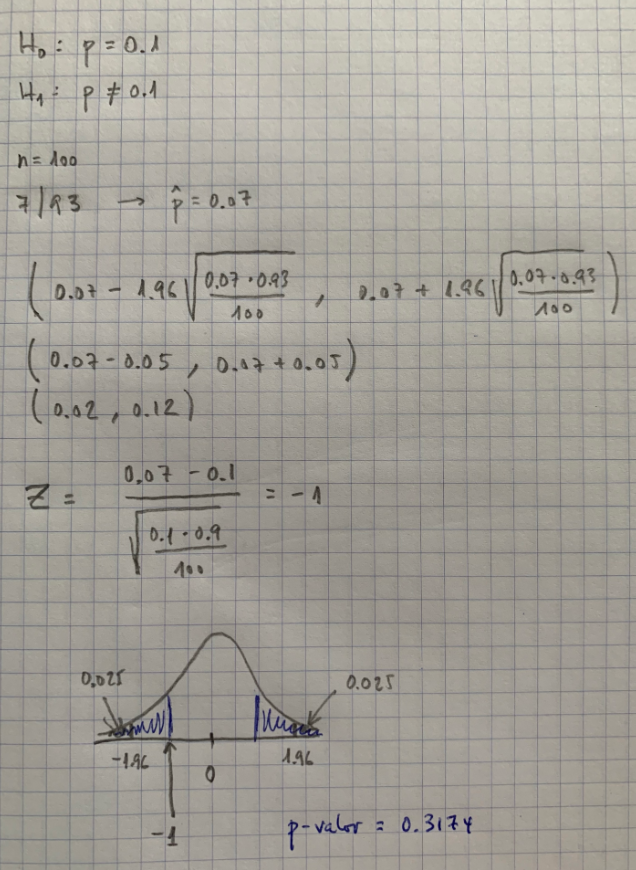 H₀: p = 0.1
H₁: p ≠ 0.1
n = 100
7/93 → p̂ = 0.07
(0.07 - 1.96 √(0.07·0.93/100) , 0.07 + 1.96 √(0.07·0.93/100))
(0.07 - 0.05 , 0.07 + 0.05)
(0.02 , 0.12)
Z = (0.07 - 0.1)/√(0.1·0.9/100) = -1
0.025 0.025
-1.96 0 1.96
-1 p-valor = 0.3174